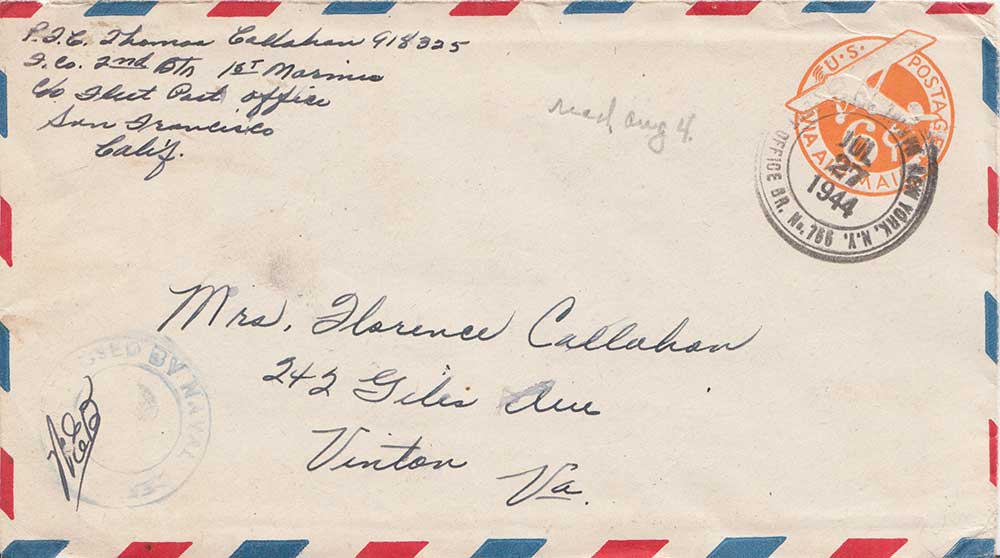 P.F.C. Thomas Callahan 918325
F. Co. 2nd Btn 1ST Marines
C/o Fleet Post Office
San Francisco
Calif.
recd aug 4.
U.S. POSTAGE
VIA AIR MAIL
6¢
NEW YORK, N.Y.
OFFICE BR. No.
JUL
27
1944
Mrs. Florence Callahan
242 Giles Ave
Vinton
Va.
PASSED BY NAVAL